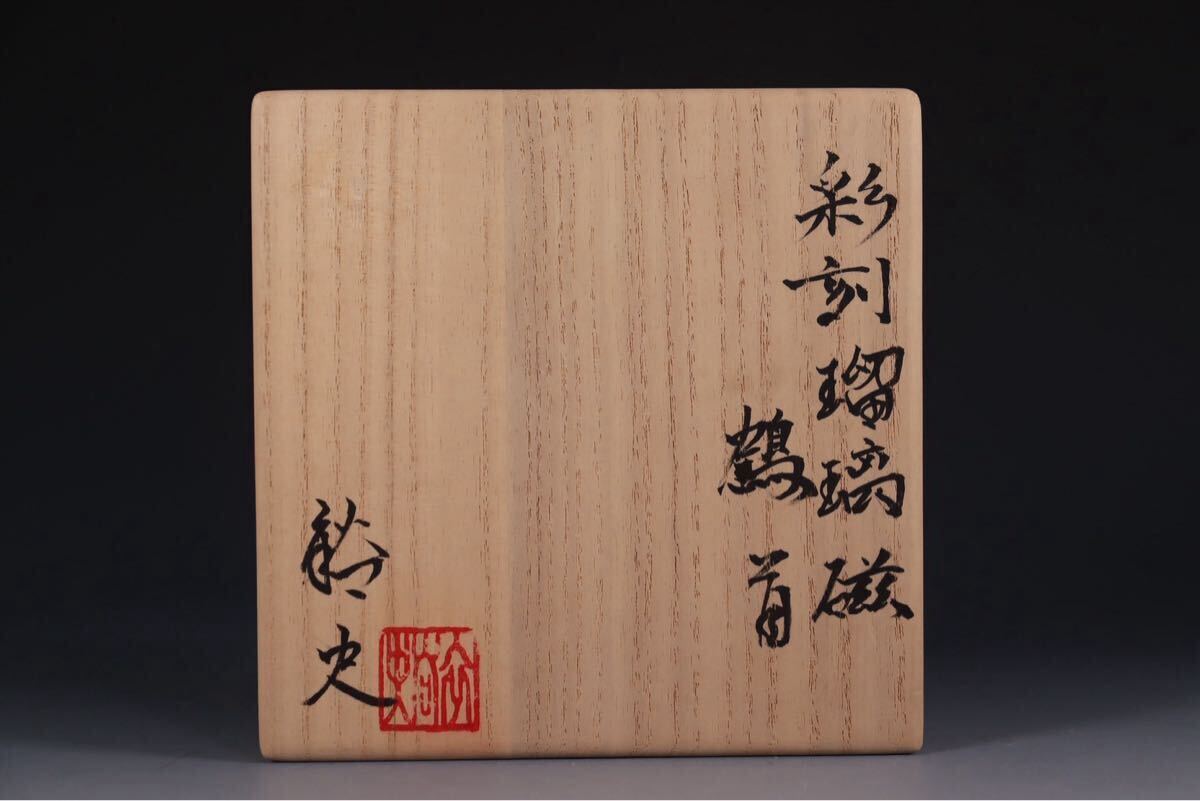 彩刻瑠璃磁
鶴首
裕史